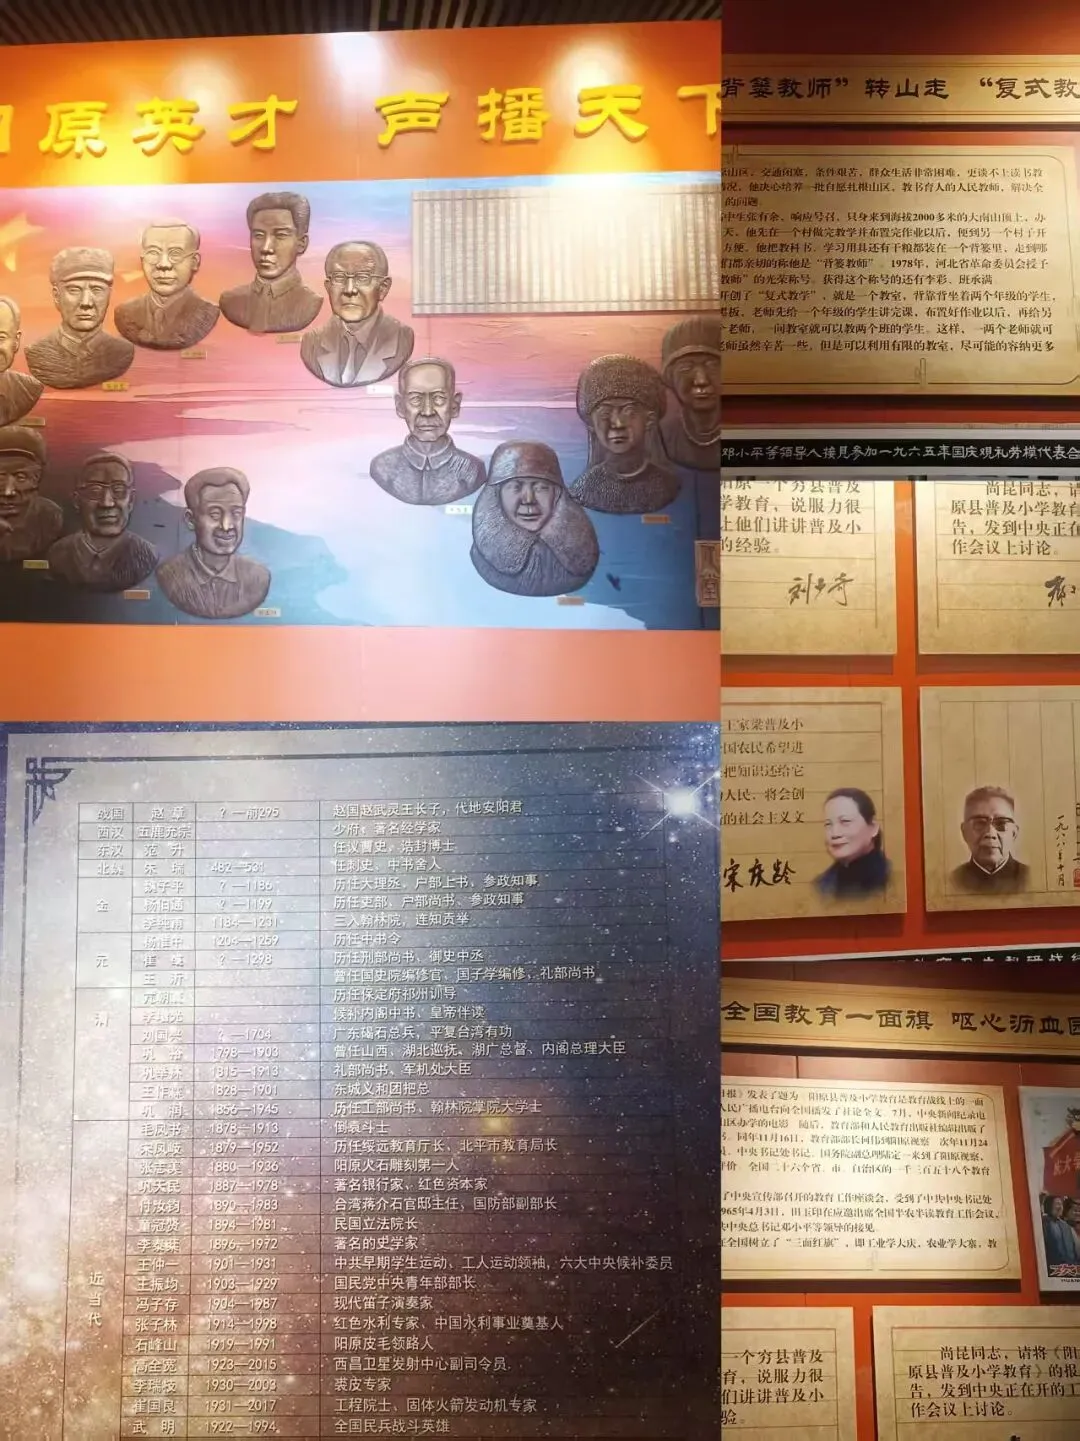 原英才 声播天下
战国 赵章 ？—前295 赵国赵武灵王长子，代地安阳君
西汉 五鹿充宗 少府，著名经学家
东汉 范升 任议曹史、浩封博士
北魏 朱瑞 482—531 任刺史、中书舍人
金 魏子平 ？—1186 历任大理丞、户部上书、参政知事
杨伯通 ？—1199 历任吏部、户部尚书、参政知事
李纯甫 1184—1231 三入翰林院，连知贡举
元 杨惟中 1204—1259 历任中书令
崔 ？—1298 历任刑部尚书、御史中丞
王沂 曾任国史院编修官、国子学编修、礼部尚书
清 历任保定府祁州训导
候补内阁中书、皇帝伴读
刘国兴 ？—1704 广东碣石总兵，平复台湾有功
1798—1903 曾任山西、湖北巡抚、湖广总督、内阁总理大臣
1815—1913 礼部尚书、军机处大臣
王作 1828—1901 东城义和团把总
润 1856—1945 历任工部尚书、翰林院掌院大学士
近当代 毛凤书 1878—1913 倒袁斗士
宋凤岐 1879—1952 历任绥远教育厅长、北平市教育局长
张志 1880—1936 阳原火石雕刻第一人
巩天民 1887—1978 著名银行家、红色资本家
付汝钧 1890—1983 台湾蒋介石官邸主任、国防部副部长
童冠贤 1894—1981 民国立法院长
李泰棻 1896—1972 著名的史学家
王仲一 1901—1931 中共早期学生运动、工人运动领袖，六大中央候补委员
王振均 1903—1929 国民党中央青年部部长
冯子存 1904—1987 现代笛子演奏家
张子林 1914—1998 红色水利专家、中国水利事业奠基人
石峰山 1919—1991 阳原皮毛领路人
高全 1923—2015 西昌卫星发射中心副司令员
李瑞 1930—2003 裘皮专家
崔国良 1931—2017 工程院士、固体火箭发动机专家
武明 1922—1994 全国民兵战斗英雄
背篓教师”转山走 “复式教
山区，交通闭塞，条件艰苦，群众生活非常困难，更谈不上读书教
情况，他决心培养一批自愿扎根山区，教书育人的人民教师，解决全
的问题
中生张有余，响应号召，只身来到海拔2000多米的大南山顶上，办
天，他先在一个村做完教学并布置完作业以后，便到另一个村子开
方便，他把教科书、学习用具还有干粮都装在一个背篓里，走到哪
们都亲切的称他是“背篓教师”。1978年，河北省革命委员会授予
教师”的光荣称号。获得这个称号的还有李彩、班承满
开创了“复式教学”，就是一个教室，背靠背坐着两个年级的学生，
黑板，老师先给一个年级的学生讲完课，布置好作业以后，再给另
个老师，一间教室就可以教两个班的学生。这样，一两个老师就可
老师虽然辛苦一些，但是可以利用有限的教室，尽可能的容纳更多
邓小平等领导人接见参加一九六五年国庆观礼劳模代表合
阳原一个穷县普及
学教育，说服力很
上他们讲讲普及小
的经验。
刘少奇
尚昆同志，请
原县普及小学教育
告，发到中央正在
作会议上讨论。
王家梁普及小
国农民希望进
把知识还给它
人民，将会创
的社会主义文
宋庆龄
一九八八年十月
全国教育一面旗 呕心沥血园
日报》发表了题为 阳原县普及小学教育是教育战线上的一面
人民广播电台向全国播发了社论全文。7月，中央新闻纪录电
山区办学的电影 随后，教育部和人民教育出版社编辑出版了
书。同年11月16日，教育部部长何伟到阳原视察 次年11月24
员，中央书记处书记、国务院副总理陆定一来到了阳原视察，
评价 全国二十六个省、市、自治区的一千三百五十八个教育
了中央宣传部召开的教育工作座谈会，受到了中共中央书记处
1965年4月3日，田玉印在应邀出席全国半农半读教育工作会议，
共中央总书记邓小平等领导的接见
在全国树立了“三面红旗”，即工业学大庆，农业学大寨，教
一个穷县普及
育，说服力很
们讲讲普及小
验。
尚昆同志，请将《阳
原县普及小学教育》的报
告，发到中央正在开的工
作会议上讨论。